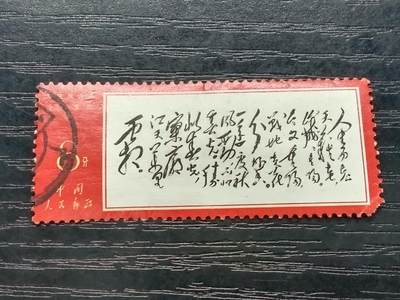 人生易老
天难老岁
岁重阳
今又重阳
战地黄花
分外香
一年一度秋
风劲不似
春光胜
似春光
寥廓
江天万里
霜
8分
中国
人民邮政